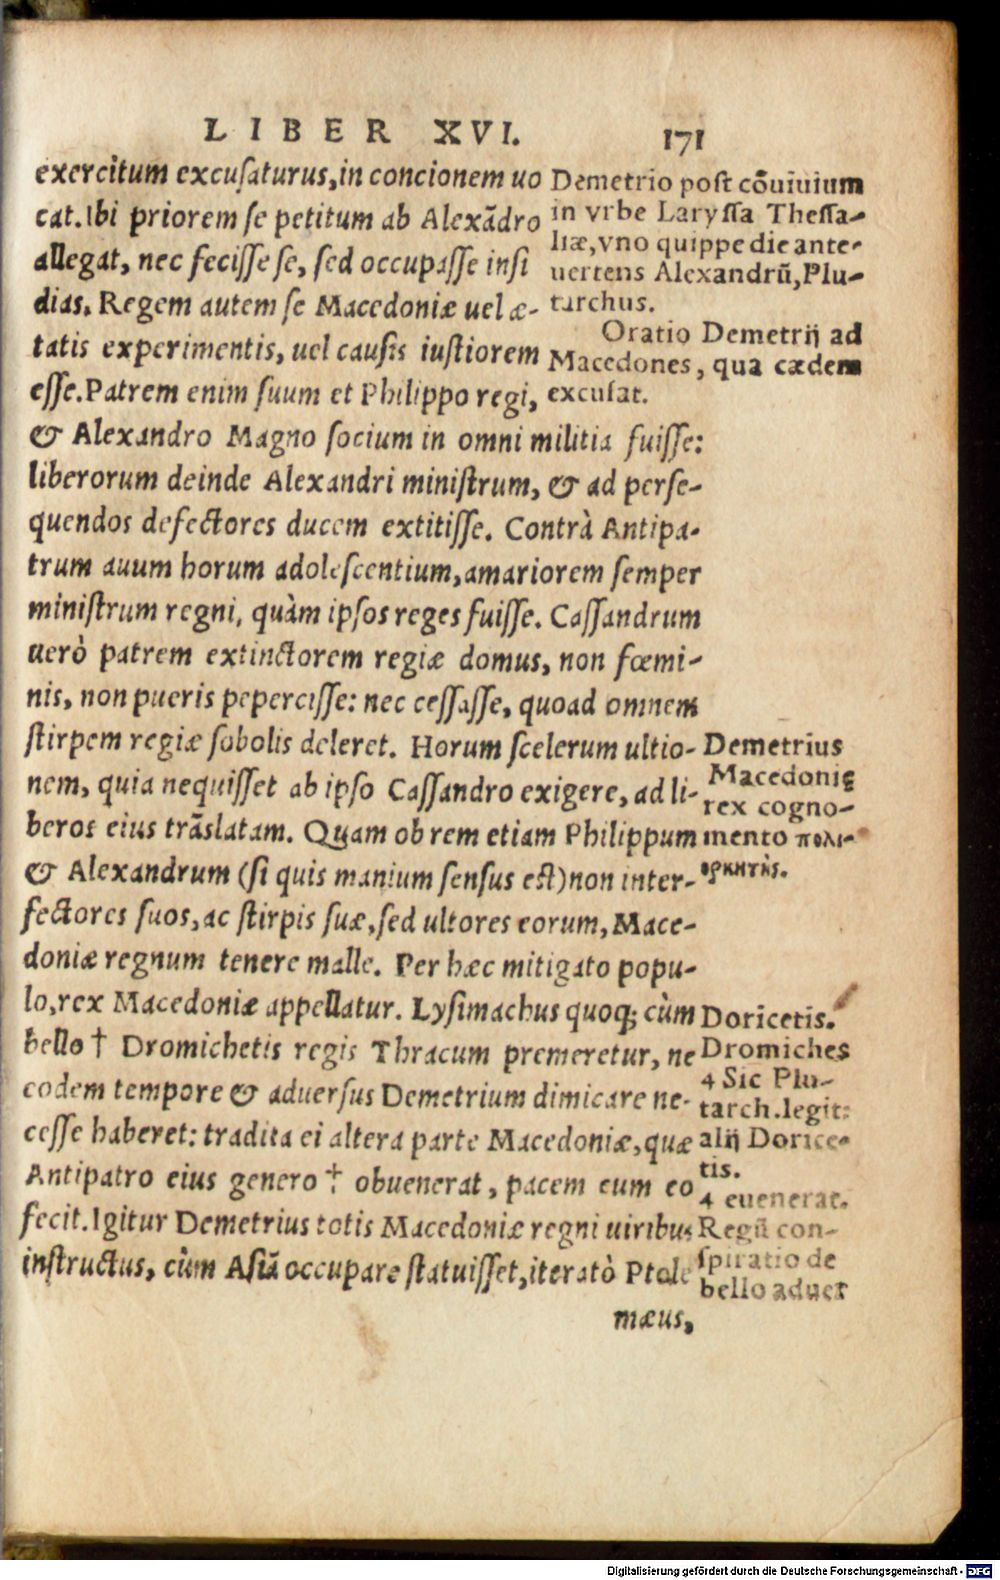 LIBER XVI. 171
exercitum excusaturus, in concionem uo
cat. Ibi priorem se petitum ab Alexãdro
allegat, nec fecisse se, sed occupasse insi
dias. Regem autem se Macedoniæ uel æ-
tatis experimentis, uel causis iustiorem
esse. Patrem enim suum et Philippo regi,
& Alexandro Magno socium in omni militia fuisse:
liberorum deinde Alexandri ministrum, & ad perse-
quendos defectores ducem extitisse. Contrà Antipa-
trum auum horum adolescentium, amariorem semper
ministrum regni, quàm ipsos reges fuisse. Cassandrum
uerò patrem extinctorem regiæ domus, non fœmi-
nis, non pueris pepercisse: nec cessasse, quoad omnem
stirpem regiæ sobolis deleret. Horum scelerum ultio-
nem, quia nequisset ab ipso Cassandro exigere, ad li-
beros eius trãslatam. Quam ob rem etiam Philippum
& Alexandrum (si quis manium sensus est) non inter-
fectores suos, ac stirpis suæ, sed ultores eorum, Mace-
doniæ regnum tenere malle. Per hæc mitigato popu-
lo, rex Macedoniæ appellatur. Lysimachus quoq; cùm
bello † Dromichetis regis Thracum premeretur, ne
eodem tempore & aduersus Demetrium dimicare ne-
cesse haberet: tradita ei altera parte Macedoniæ, quæ
Antipatro eius genero † obuenerat, pacem cum eo
fecit. Igitur Demetrius totis Macedoniæ regni uiribus
instructus, cùm Asiã occupare statuisset, iteratò Ptole
mæus,
Demetrio post cõuiuium
in vrbe Laryssa Thessa-
liæ, vno quippe die ante-
uertens Alexandrũ, Plu-
tarchus.
Oratio Demetrij ad
Macedones, qua cædem
excusat.
Demetrius
Macedonię
rex cogno-
mento πολι-
ορκητὴς.
Doricetis.
Dromiches
4 Sic Plu-
tarch. legit:
alij Dorice-
tis.
4 euenerat.
Regũ con-
spiratio de
bello aduer
Digitalisierung gefördert durch die Deutsche Forschungsgemeinschaft - DFG